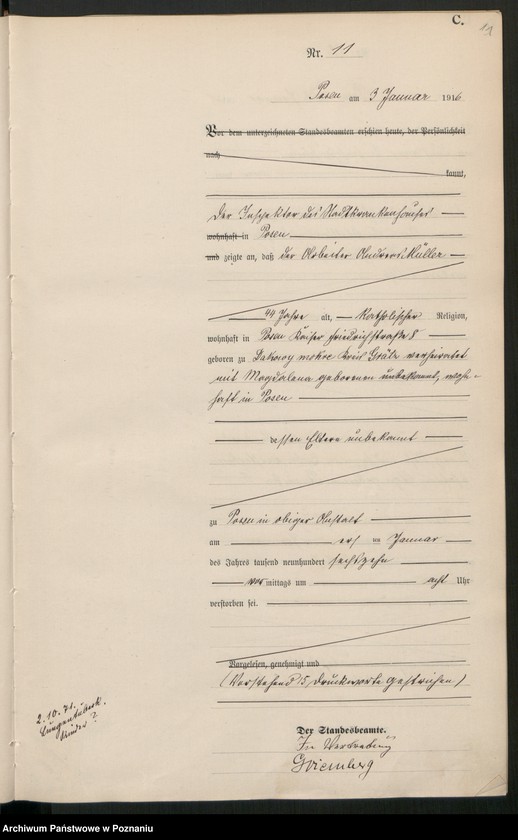 C.
11
Nr. 11
Posen am 3 Januar 1916
Vor dem unterzeichneten Standesbeamten erschien heute, der Persönlichkeit
nach
kannt,
Der Inspektor des Stadtkrankenhauses
wohnhaft in Posen
und zeigte an, daß der Arbeiter Andreas Müller
44 Jahre alt, katholischer Religion,
wohnhaft in Posen Kaiser Friedrichstraße 8
geboren zu Lakowy mokre Kreis Grätz verheiratet
mit Magdalena geborenen unbekannt, wohn-
haft in Posen
dessen Eltern unbekannt
zu Posen in obiger Anstalt
am ersten Januar
des Jahres tausend neunhundert sechszehn
vormittags um acht Uhr
verstorben sei.
Vorgelesen, genehmigt und
(Vorstehend 15 Druckworte gestrichen)
2.10.71.
Lungentuberk.
Kinder ?
Der Standesbeamte.
In Vertretung
Archiwum Państwowe w Poznaniu